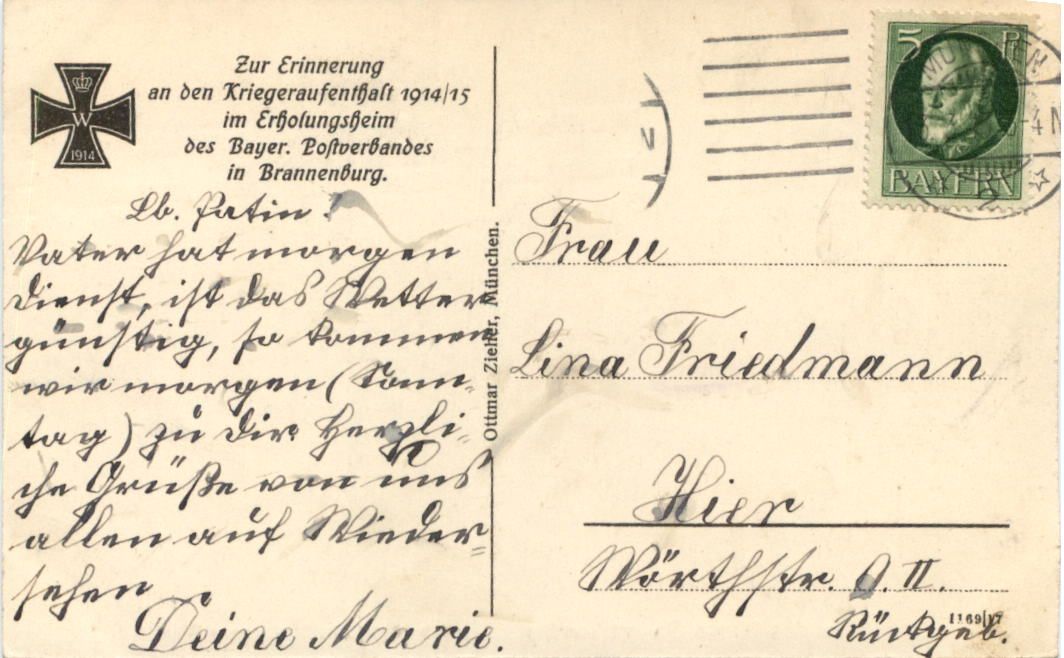 Zur Erinnerung
an den Kriegeraufenthalt 1914/15
im Erholungsheim
des Bayer. Postverbandes
in Brannenburg.
W
1914
Lb. Patin!
Vater hat morgen
Dienst, ist das Wetter
günstig, so kommen
wir morgen (Sonn-
tag) zu dir. Herzli-
che Grüße von uns
allen auf Wieder-
sehen
Deine Marie.
Ottmar Zieher, München.
5 Pf
BAYERN
MÜNCHEN
2
Frau
Lina Friedmann
Hier
Wörthstr. II.
Rückgeb.
1169/17